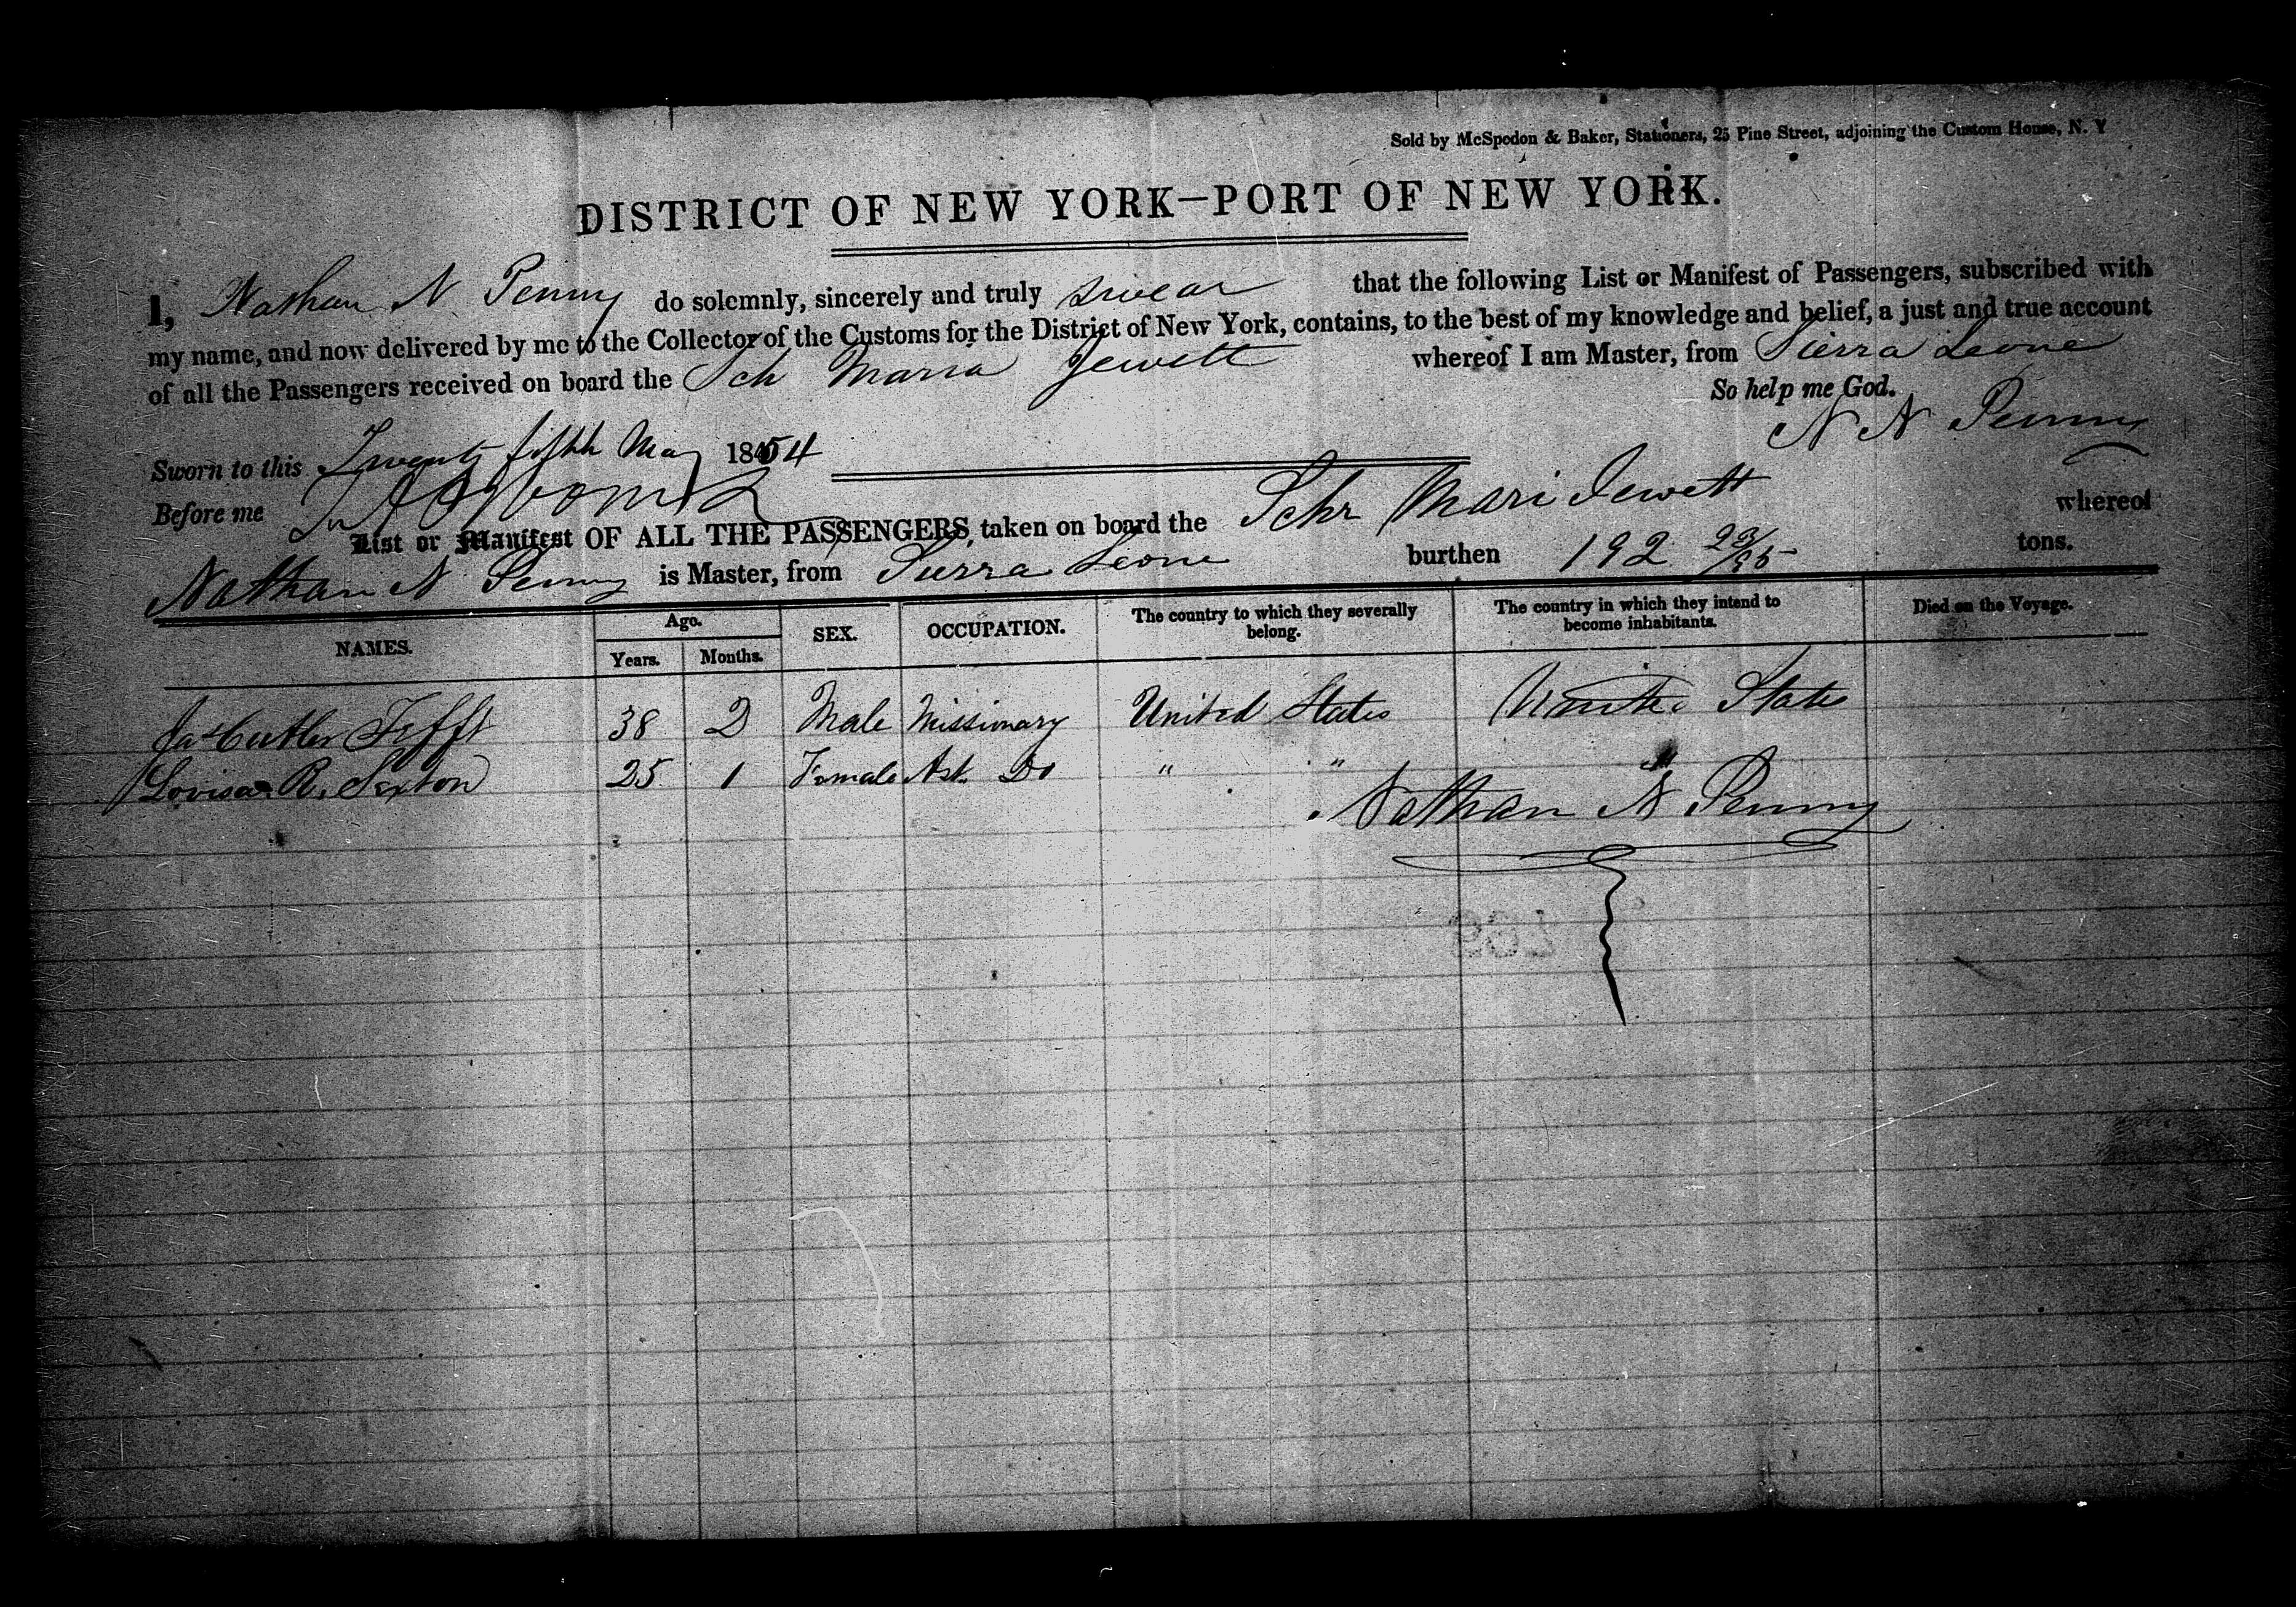 Sold by McSpedon & Baker, Stationers, 25 Pine Street, adjoining the Custom House, N. Y
DISTRICT OF NEW YORK—PORT OF NEW YORK.
I, Nathan N. Penny do solemnly, sincerely and truly swear that the following List or Manifest of Passengers, subscribed with
my name, and now delivered by me to the Collector of the Customs for the District of New York, contains, to the best of my knowledge and belief, a just and true account
of all the Passengers received on board the Sch Maria Jewett whereof I am Master, from Sierra Leone
So help me God.
Sworn to this Twenty fifth May 1854 N N Penny
Before me
List or Manifest OF ALL THE PASSENGERS taken on board the Schr Mari Jewett whereof
Nathan N Penny is Master, from Sierra Leone burthen 192 23/95 tons.
NAMES. Age. SEX. OCCUPATION. The country to which they severally belong. The country in which they intend to become inhabitants. Died on the Voyage.
Years. Months.
Jas Cutler Tefft 38 2 Male Missionary United States United States
Lovisa R. Sexton 25 1 Female Ast. Do " " "
Nathan N Penny